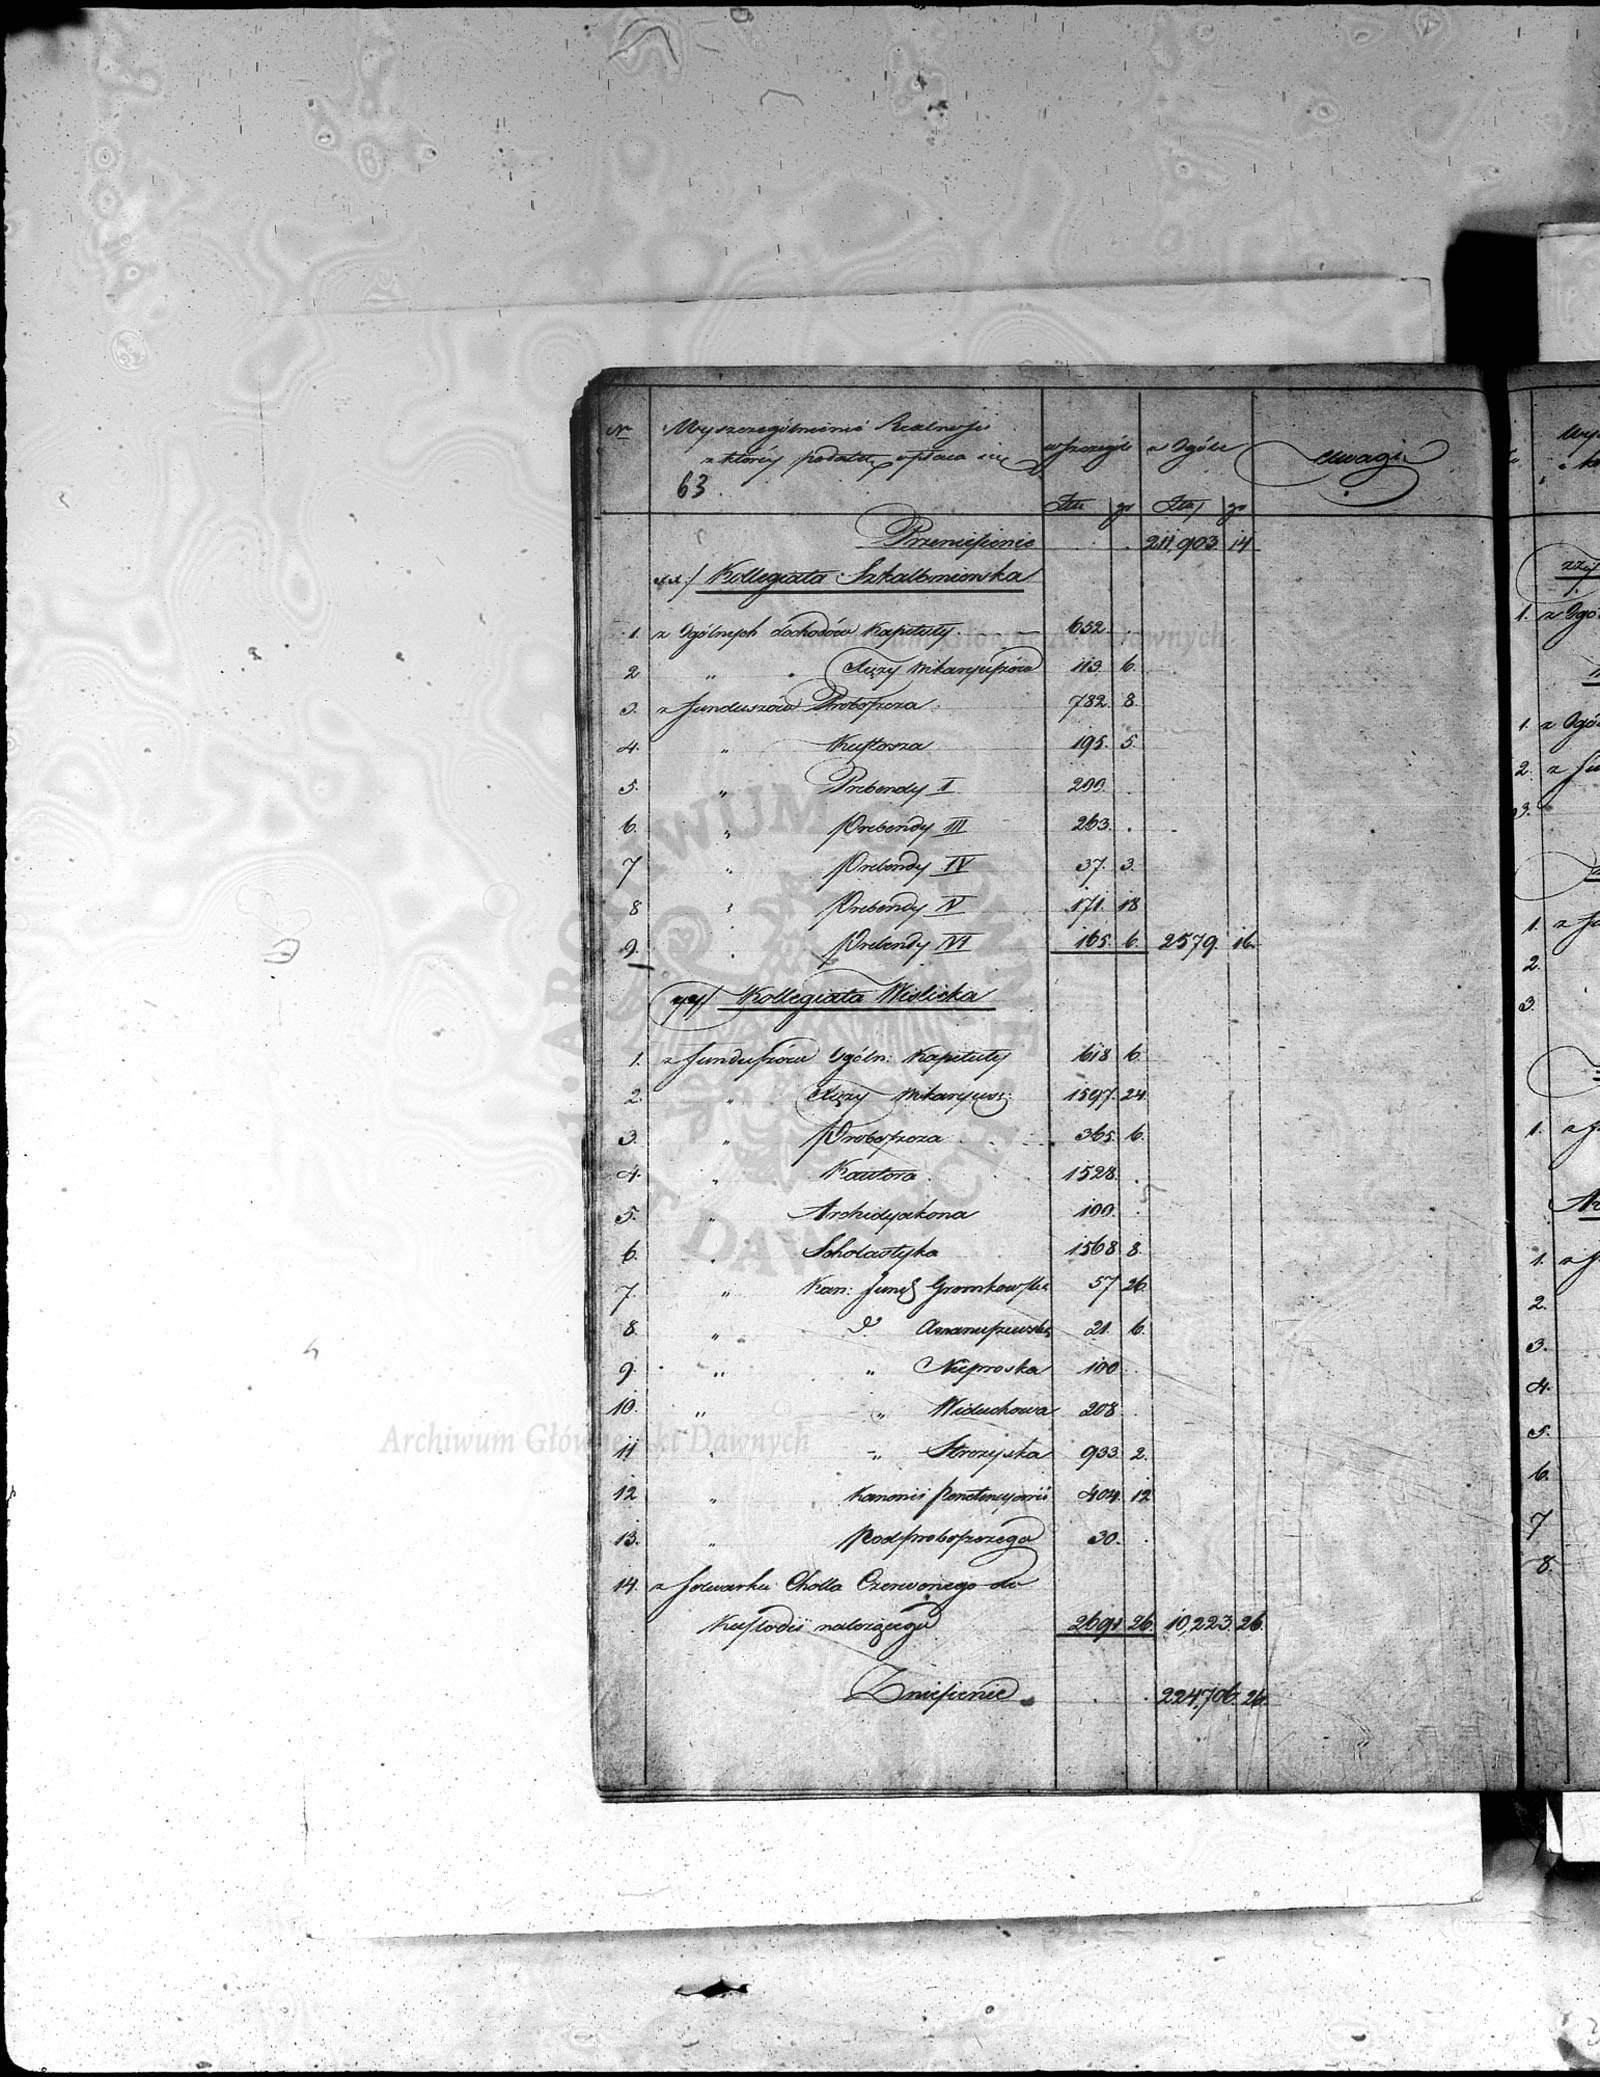 Nr Wyszczególnienie Realności w szczególe w Ogóle Uwagi
z któréy podatek opłaca się
63.
Złu gr Złu gr
Przeniesienie . . 211,903 14
xx/ Kollegiata Szkalbmierska
1. z Ogólnych dochodów Kapituły . . 652. .
2 „ „ Xięży Wikaryuszów 113. 6.
3. z funduszów Proboszcza . 782. 8.
4. „ Kustosza 195. 5.
5. „ Prebendy I 200. .
6. „ Prebendy III 263. .
7 „ Prebendy IV 37. 3.
8 „ Prebendy V 171. 18
9. „ Prebendy VI 165. 6. 2579. 16.
yy/ Kollegiata Wislicka
1. z funduszów Ogóln: Kapituły 618 6.
2. „ Xięży Wikaryusz: 1597. 24.
3. „ Proboszcza 365. 6.
4. „ Kantora . 1528. .
5. „ Archidyakona 100. .
6. „ Scholastyka 1568 8.
7. „ Kan: fund 57 26.
8. „ dº 21. 6.
9. „ „ 100 .
10. „ „ Widuchowa 208 .
11 „ „ Strożyska 933. 2.
12 „ Kanonii 404. 12
13. „ Podproboszczego 30. .
14. z folwarku Chotla Czerwonego do
Kustodii należącego 2691. 26. 10,223. 26.
Zniesienie . . 224,706. 26.
Archiwum Główne Akt Dawnych
ARCHIWUM GŁÓWNE AKT DAWNYCH